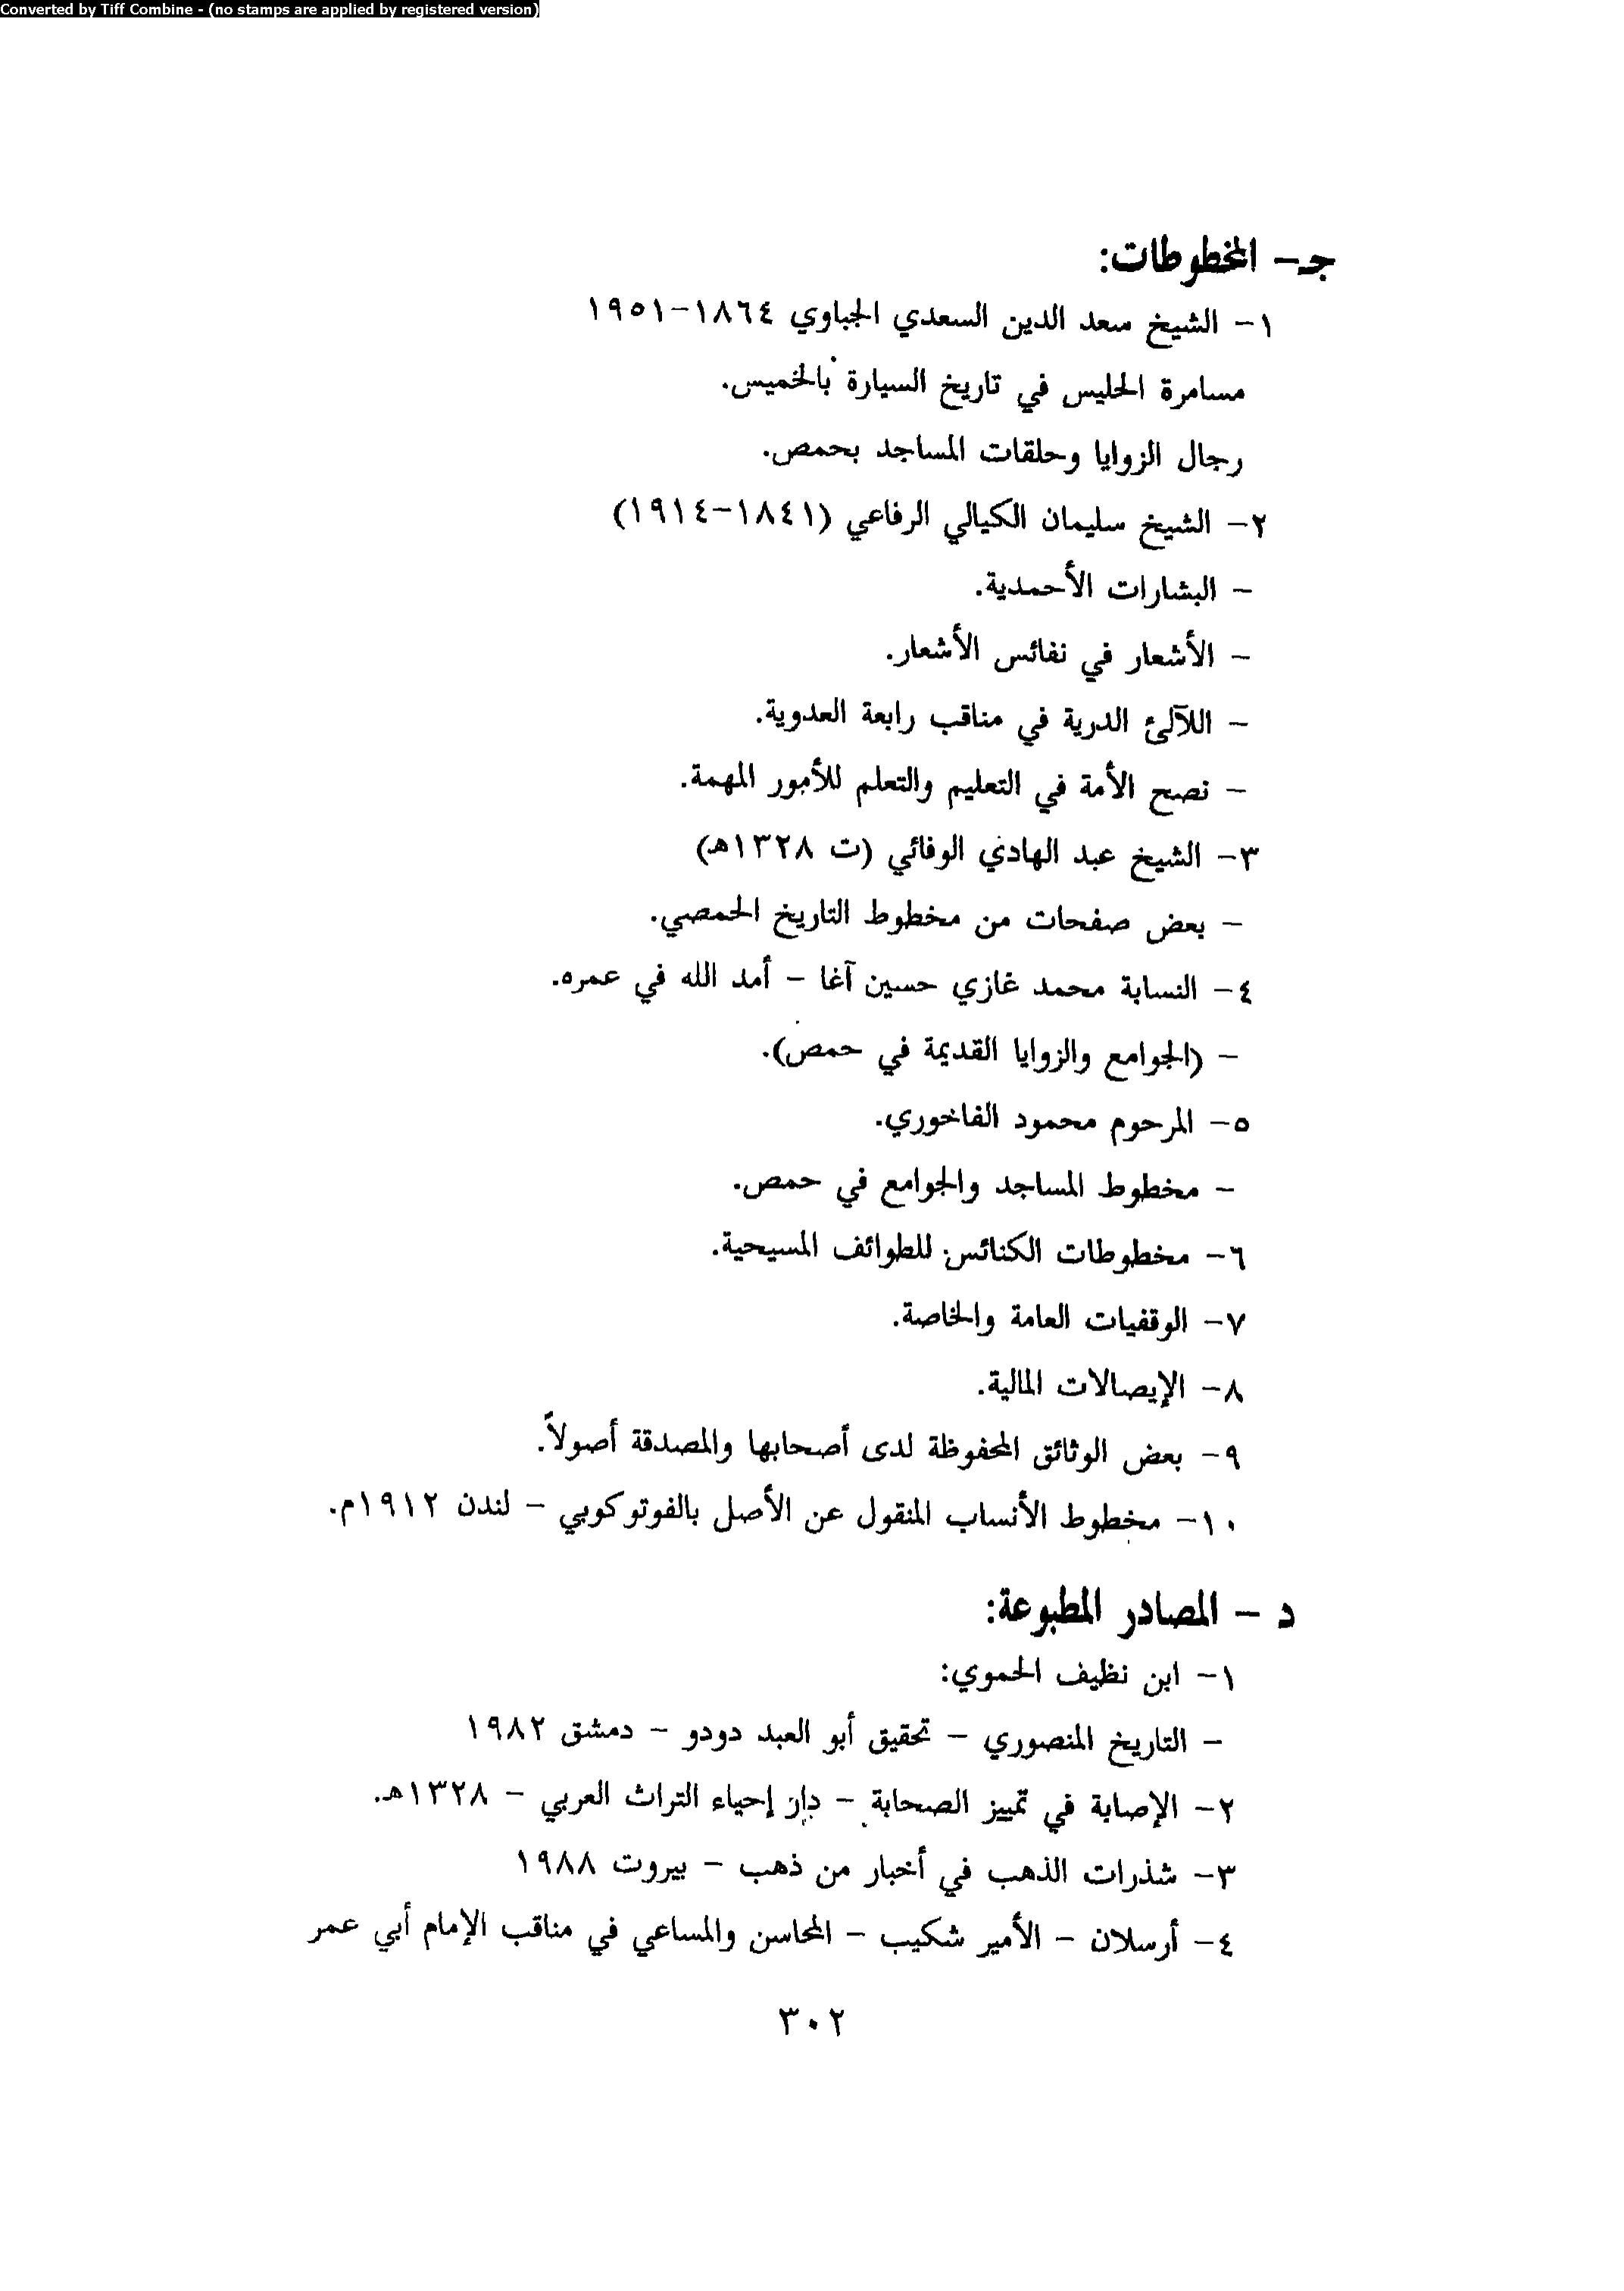 Converted by Tiff Combine - (no stamps are applied by registered version)
جـ- المخطوطات:
١- الشيخ سعد الدين السعدي الجباوي ١٨٦٤-١٩٥١
مسامرة الجليس في تاريخ السيارة بالخميس.
رجال الزوايا وحلقات المساجد بحمص.
٢- الشيخ سليمان الكيالي الرفاعي (١٨٤١-١٩١٤)
- البشارات الأحمدية.
- الأشعار في نفائس الأشعار.
- اللآلئ الدرية في مناقب رابعة العدوية.
- نصح الأمة في التعليم والتعلم للأمور المهمة.
٣- الشيخ عبد الهادي الوفائي (ت ١٣٢٨هـ)
- بعض صفحات من مخطوط التاريخ الحمصي.
٤- النسابة محمد غازي حسين آغا - أمد الله في عمره.
- (الجوامع والزوايا القديمة في حمص).
٥- المرحوم محمود الفاخوري.
- مخطوط المساجد والجوامع في حمص.
٦- مخطوطات الكنائس للطوائف المسيحية.
٧- الوقفيات العامة والخاصة.
٨- الإيصالات المالية.
٩- بعض الوثائق المحفوظة لدى أصحابها والمصدقة أصولاً.
١٠- مخطوط الأنساب المنقول عن الأصل بالفوتوكوبي - لندن ١٩١٢م.
د - المصادر المطبوعة:
١- ابن نظيف الحموي:
- التاريخ المنصوري - تحقيق أبو العبد دودو - دمشق ١٩٨٢
٢- الإصابة في تمييز الصحابة - دار إحياء التراث العربي - ١٣٢٨هـ.
٣- شذرات الذهب في أخبار من ذهب - بيروت ١٩٨٨
٤- أرسلان - الأمير شكيب - المحاسن والمساعي في مناقب الإمام أبي عمر
٣٠٢